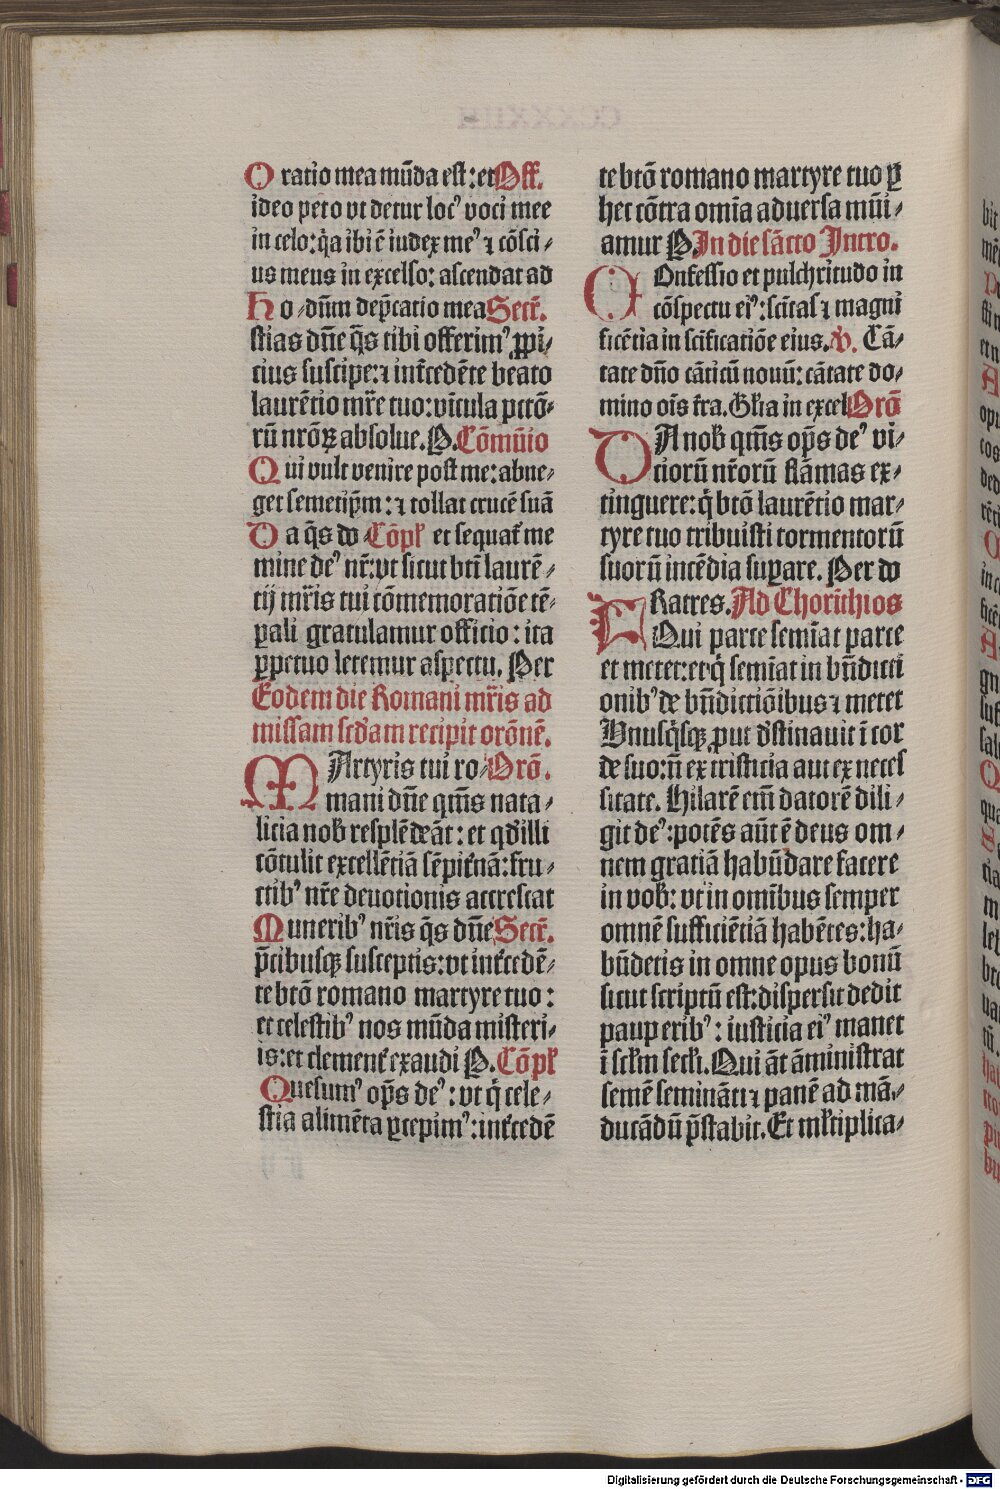 Oratio mea mūda est: et Off.
ideo peto vt detur locꝰ voci mee
in celo: q̄a ibi ē iudex meꝰ ⁊ cōsci⸗
us meus in excelso: ascendat ad
Ho⸗ dūm dep̄catio mea Secr̄.
stias dn̄e q̄s tibi offerimꝰ ꝓpi⸗
cius suscipe: ⁊ int̄cedēte beato
laurētio mr̄e tuo: vīcula pctō⸗
rū nrōꝝ absolue. P. Cōmūio
Qui vult venire post me: abne⸗
get semetip̄m: ⁊ tollat crucē suā
Da q̄s do⸗ Cōpl̄ et sequat̄ me
mine deꝰ nr̄: vt sicut bti laurē⸗
tij mr̄is tui cōmemoratiōe tē⸗
ꝑali gratulamur officio: ita
ꝑpetuo letemur aspectu. Per
Eodem die Romani mr̄is ad
missam scd̄am recipit orōnē.
MArtyris tui ro⸗ Orō.
mani dn̄e qm̄s nata⸗
licia nob̄ resplēdeāt: et qd̄ illi
cōtulit excellētiā sēpit̄nā: fru⸗
ctibꝰ nr̄e deuotionis accrescat
Muneribꝰ nr̄is q̄s dn̄e Secr̄.
p̄cibusqꝫ susceptis: vt int̄cedē⸗
te btō romano martyre tuo:
et celestibꝰ nos mūda misteri⸗
is: et clement̄ exaudi P. Cōpl̄
Quesumꝰ op̄s deꝰ: vt q̄ cele⸗
stia alimēta ꝑcepimꝰ: int̄cedē
te btō romano martyre tuo ꝑ
hec cōtra omīa aduersa mūi⸗
amur P. In die sācto Intro.
COnfessio et pulchritudo in
cōspectu eiꝰ: scītas ⁊ magni
ficētia in scificatiōe eius. V. Cā⸗
tate dn̄o cāticū nouū: cātate do⸗
mino oīs t̄ra. Gl̄ia in excel Orō
DA nob̄ qm̄s op̄s deꝰ vi⸗
ciorū nr̄orū flāmas ex⸗
tinguere: q̄ btō laurētio mar⸗
tyre tuo tribuisti tormentorū
suorū incēdia suꝑare. Per do
FRatres. Ad Chorīthios
Qui parce semīat parce
et metet: et q̄ semīat in bn̄dicti
onibꝰ de bn̄dictiōibus ⁊ metet
Vnusq̄sqꝫ ꝓut d̄stinauit ī cor
de suo: n̄ ex tristicia aut ex necef
sitate. Hilarē em̄ datorē dili⸗
git deꝰ: potēs aūt ē deus om⸗
nem gratiā habūdare facere
in vob̄: vt in omībus semper
omnē sufficiētiā habētes: ha⸗
būdetis in omne opus bonū
sicut scriptū est: dispersit dedit
pauperibꝰ: iusticia eiꝰ manet
ī scl̄m secl̄i. Qui āt āministrat
semē semināti ⁊ panē ad mā⸗
ducādū p̄stabit. Et ml̄tiplica⸗
Digitalisierung gefördert durch die Deutsche Forschungsgemeinschaft - DFG